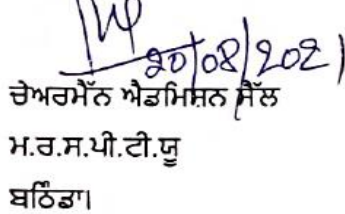 20/08/2021
ਚੇਅਰਮੈੱਨ ਐਡਮਿਸ਼ਨ ਸੈੱਲ
ਮ.ਰ.ਸ.ਪੀ.ਟੀ.ਯੂ
ਬਠਿੰਡਾ।